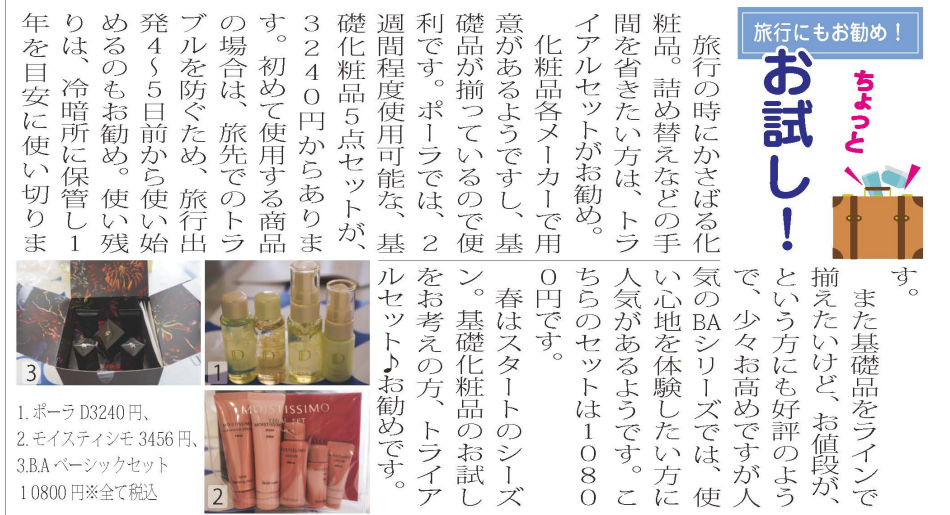 旅行にもお勧め！
ちょっと
お試し！
旅行の時にかさばる化
粧品。詰め替えなどの手
間を省きたい方は、トラ
イアルセットがお勧め。
化粧品各メーカーで用
意があるようですし、基
礎品が揃っているので便
利です。ポーラでは、2
週間程度使用可能な、基
礎化粧品5点セットが、
3240円からありま
す。初めて使用する商品
の場合は、旅先でのトラ
ブルを防ぐため、旅行出
発4～5日前から使い始
めるのもお勧め。使い残
りは、冷暗所に保管し1
年を目安に使い切りま
す。
また基礎品をラインで
揃えたいけど、お値段が、
という方にも好評のよう
で、少々お高めですが人
気のBAシリーズでは、使
い心地を体験したい方に
人気があるようです。こ
ちらのセットは1080
0円です。
春はスタートのシーズ
ン。基礎化粧品のお試し
をお考えの方、トライア
ルセット♪お勧めです。
3
1
2
MOISTISSIMO
1.ポーラ D3240円、
2.モイスティシモ 3456円、
3.B.Aベーシックセット
10800円※全て税込